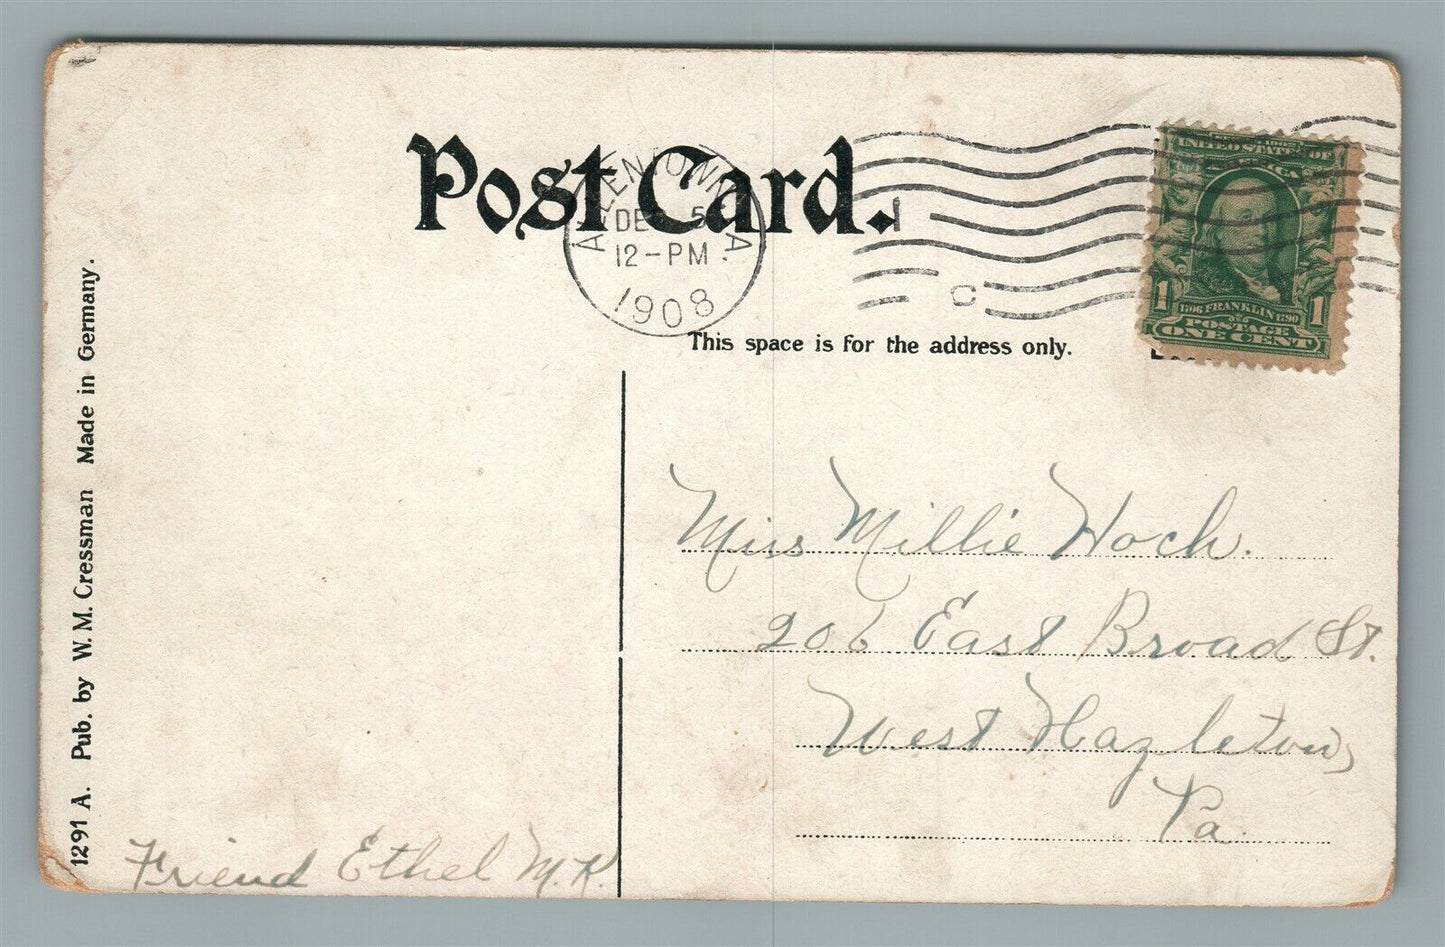 Post Card.
ALLENTOWN, PA.
DEC 5
12-PM
1908
1
C
UNITED STATES OF
AMERICA
1 1706 FRANKLIN 1790 1
POSTAGE
ONE CENT
This space is for the address only.
Miss Millie Hoch.
206 East Broad St.
West Hazleton,
Pa.
Friend Ethel M. K.
1291 A. Pub. by W. M. Cressman Made in Germany.